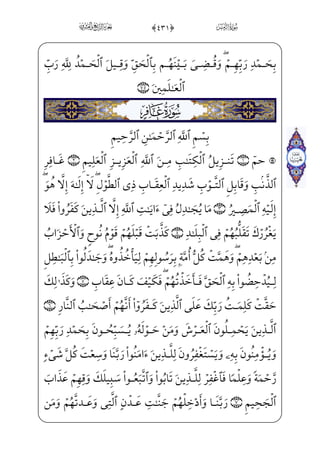 ﴿٤٣١﴾
بِحَمْدِ رَبِّهِمْ ۖ وَقُضِىَ بَيْنَهُم بِٱلْحَقِّ وَقِيلَ ٱلْحَمْدُ لِلَّهِ رَبِّ
ٱلْعَٰلَمِينَ
سُورَةُ غَافِرٍ
بِسْمِ ٱللَّهِ ٱلرَّحْمَٰنِ ٱلرَّحِيمِ
۞ حمٓ تَنزِيلُ ٱلْكِتَٰبِ مِنَ ٱللَّهِ ٱلْعَزِيزِ ٱلْعَلِيمِ غَافِرِ
ٱلذَّنۢبِ وَقَابِلِ ٱلتَّوْبِ شَدِيدِ ٱلْعِقَابِ ذِى ٱلطَّوْلِ ۖ لَآ إِلَٰهَ إِلَّا هُوَ ۖ
إِلَيْهِ ٱلْمَصِيرُ مَا يُجَٰدِلُ فِىٓ ءَايَٰتِ ٱللَّهِ إِلَّا ٱلَّذِينَ كَفَرُوا۟ فَلَا
يَغْرُرْكَ تَقَلُّبُهُمْ فِى ٱلْبِلَٰدِ كَذَّبَتْ قَبْلَهُمْ قَوْمُ نُوحٍ وَٱلْأَحْزَابُ
مِنۢ بَعْدِهِمْ ۖ وَهَمَّتْ كُلُّ أُمَّةٍۭ بِرَسُولِهِمْ لِيَأْخُذُوهُ ۖ وَجَٰدَلُوا۟ بِٱلْبَٰطِلِ
لِيُدْحِضُوا۟ بِهِ ٱلْحَقَّ فَأَخَذْتُهُمْ ۖ فَكَيْفَ كَانَ عِقَابِ وَكَذَٰلِكَ
حَقَّتْ كَلِمَتُ رَبِّكَ عَلَى ٱلَّذِينَ كَفَرُوٓا۟ أَنَّهُمْ أَصْحَٰبُ ٱلنَّارِ
ٱلَّذِينَ يَحْمِلُونَ ٱلْعَرْشَ وَمَنْ حَوْلَهُۥ يُسَبِّحُونَ بِحَمْدِ رَبِّهِمْ
وَيُؤْمِنُونَ بِهِۦ وَيَسْتَغْفِرُونَ لِلَّذِينَ ءَامَنُوا۟ رَبَّنَا وَسِعْتَ كُلَّ شَىْءٍ
رَّحْمَةً وَعِلْمًا فَٱغْفِرْ لِلَّذِينَ تَابُوا۟ وَٱتَّبَعُوا۟ سَبِيلَكَ وَقِهِمْ عَذَابَ
ٱلْجَحِيمِ رَبَّنَا وَأَدْخِلْهُمْ جَنَّٰتِ عَدْنٍ ٱلَّتِى وَعَدتَّهُمْ وَمَن